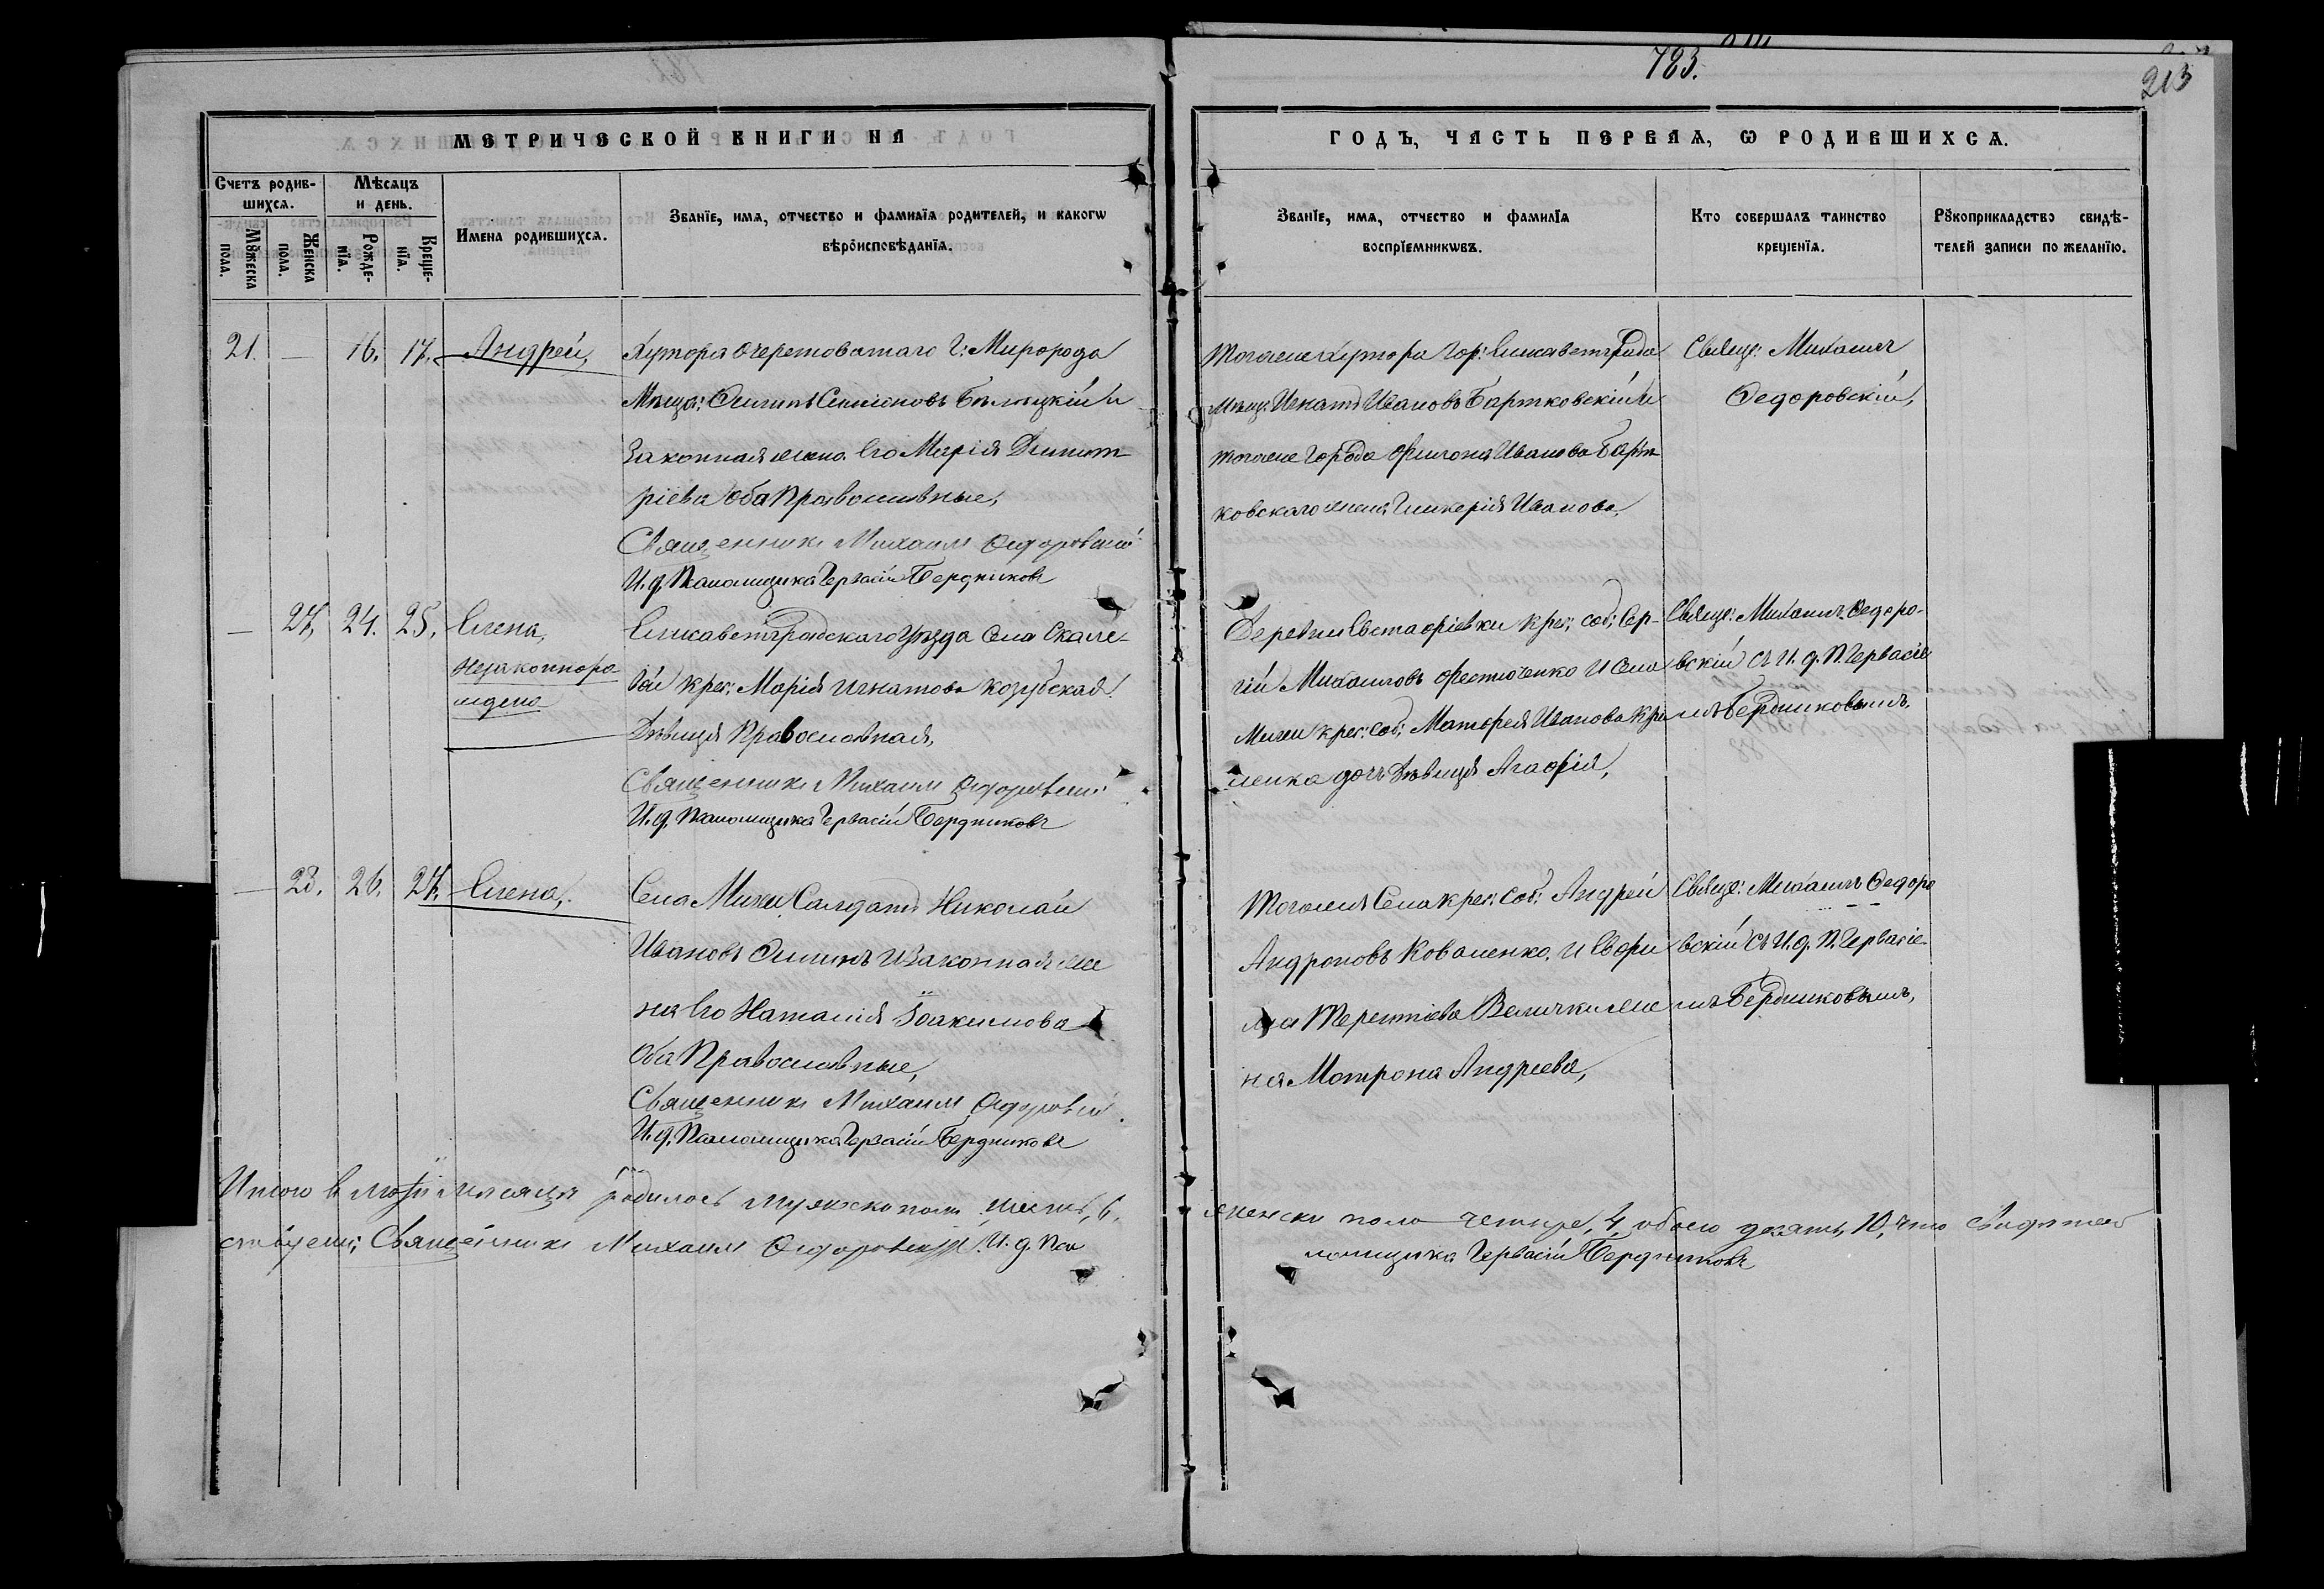 783.
213
МЕТРИЧЕСКОЙ КНИГИ НА
ГОДЪ, ЧАСТЬ ПЕРВАЯ, Ѡ РОДИВШИХСѦ.
Счетъ родив-
шихсѧ.
Мѣсѧцъ
и день.
Мꙋжеска
пола.
Женска
пола.
Рожде-
нїѧ.
Креще-
нїѧ.
Имена родившихсѧ.
Званїе, имѧ, отчество и фамилїѧ родителей, и какогѡ
вѣроисповѣданїѧ.
Званїе, имѧ, отчество и фамилїѧ
воспрїемникѡвъ.
Кто совершалъ таинство
крещенїѧ.
Рꙋкоприкладство свидѣ-
телей записи по желанїю.
21. — 16. 17. Андрей,
Хутора Очеретоватаго Г: Миророда
Мѣща: Филипъ Симионовъ Бѣлицкій и
Законная жена Его Марія Димит
ріева Оба Православные,
Священникъ Михаилъ Федоровскій
И. д. Паломщика Гервасій Бердниковъ
тогоже Хутора Гор: Елисаветъграда
мѣщ: Игнатъ Ивановъ Бартковскій и
тогоже города Филона Иванова Барт
ковскаго жена Гликерія Иванова,
Свящ: Михаилъ
Федоровскій,
— 24. 25. Елена,
незаконноро
ждена
Елисаветъградскаго Уѣзда Села Скале
вой крес: Марія Игнатова Козубская
Дѣвица Православная,
Священникъ Михаилъ Федоровскій
И. д. Паломщика Гервасій Бердниковъ
Деревни Евстафіевки крес: соб: Сер-
гій Михаиловъ Фестюченко и Села
Миги крес: соб: Матфея Иванова Кра
ленка дочь Дѣвица Агафія,
Свящ: Михаилъ Федоро-
вскій съ И. д. П. Гервасіе
мъ Бердниковымъ,
— 23. 26. 27. Елена,
Села Миги Салдатъ Николай
Ивановъ Филинъ и Законная же
на Его Наталія Іоакимова
Оба Православные,
Священникъ Михаилъ Федоровскій
И. д. Паломщика Гервасій Бердниковъ
Тогожъ Села крес: соб: Андрей
Андроновъ Коваленко и Ефри
ма Терентіева Велички же
на Мотрона Андреева,
Свящ: Михаилъ Федоро
вскій съ И. д. П. Гервасіе-
мъ Бердниковымъ,
Итого въ маѣ мѣсяцѣ родилось мужеско пола шесть, 6,
женски пола четыре, 4, обоего десять, 10, что свидѣтел
ствуемъ: Священникъ Михаилъ Федоровскій И. д. Пал
ломщика Гервасій Бердниковъ